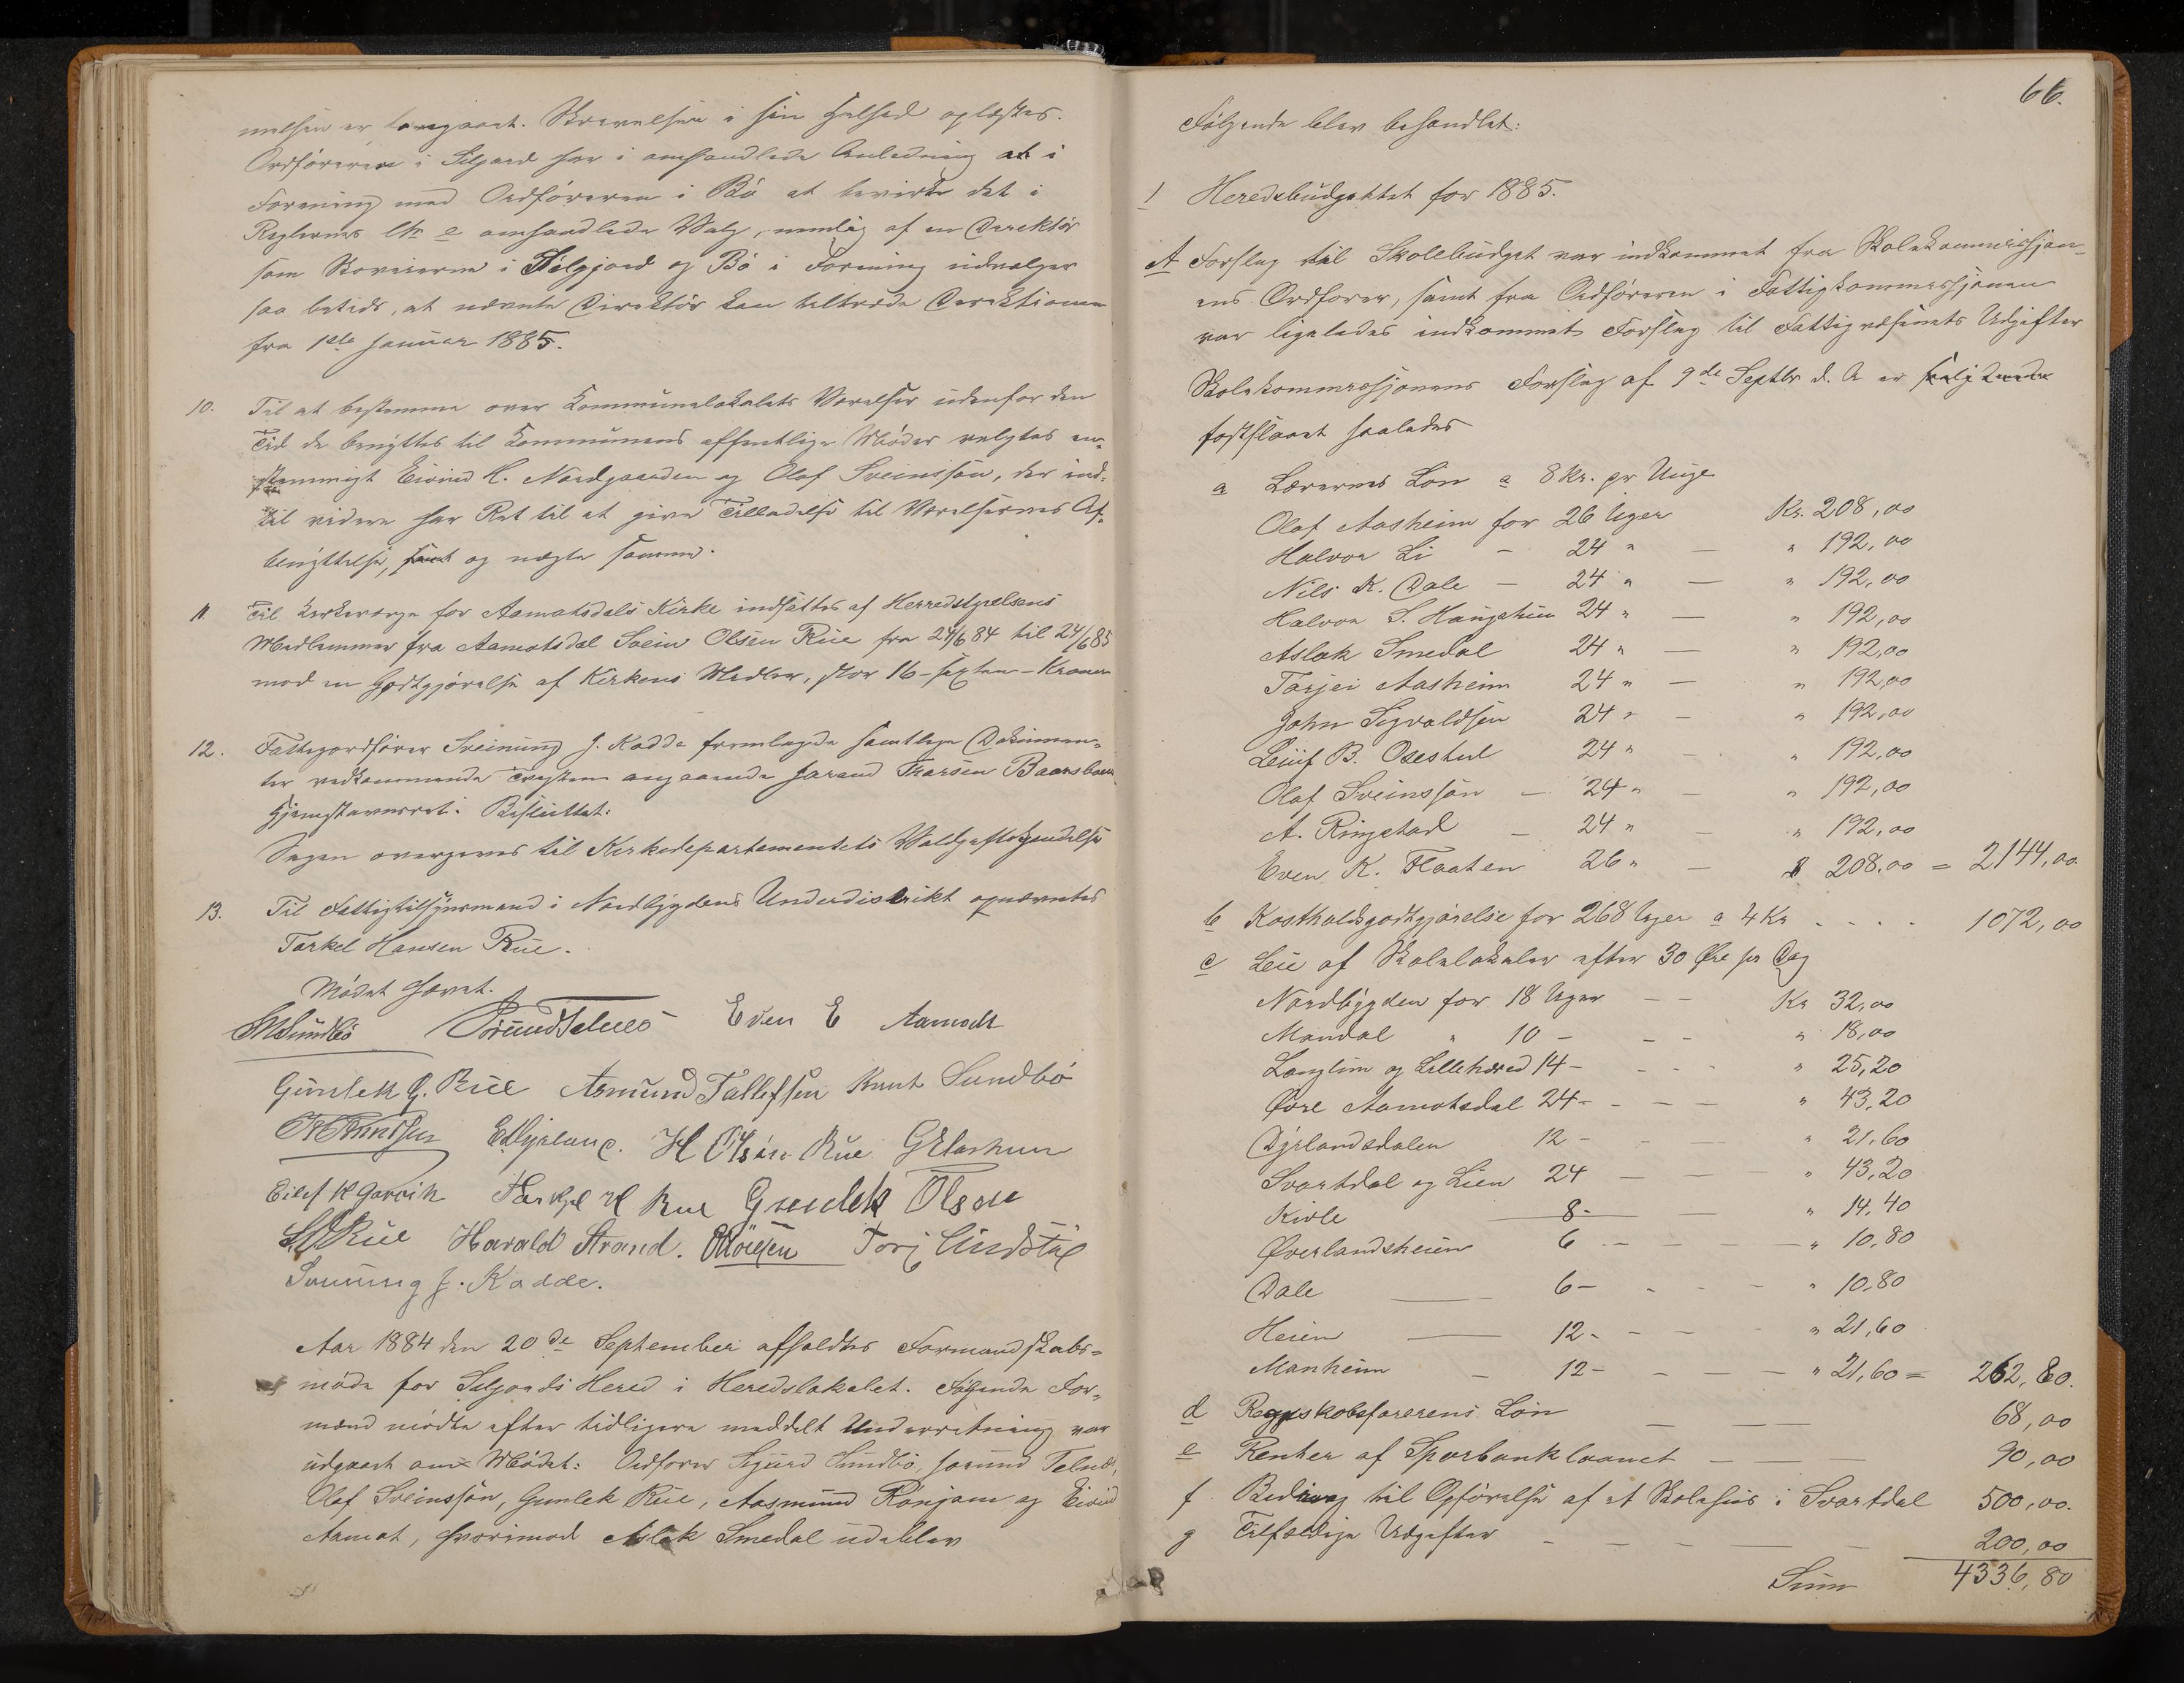 melsen er foregaaet. Skrivelsen i sin Helhed oplæstes.
Ordføreren i Siljord har i omhandlede Anledning at i
Forening med Ordføreren i Bø at bevirke det i
Reglernes e omhandlede Valg, nemlig af en Direktør
som Skoveierne i Siljord og Bø i Forening udvælger
saa betids, at nævnte Direktør kan tiltræde Direktionen
fra 1ste Januar 1885.
10. Til at bestemme over Kommunelokalets Værelser udenfor den
Tid de benyttes til Kommunens offentlige Møder valgtes en-
stemmigt Eivind H. Nordgaarden og Olaf Sveinssøn, der ind-
til videre har Ret til at give Tilladelse til Værelsernes Af-
benyttelse, samt og nægte samme.
11 Til Kirkeværge for Aamotsdals Kirke indsattes af Herredstyrelsens
Medlemmer fra Aamotsdal Svein Olsen Rue fra 24/6 84 til 24/6 85
mod en Godtgjørelse af Kirkens Midler, stor 16 - sexten - Kroner
12. Fattigordfører Sveinung J. Kadde fremlagde samtlige Dokumen-
ter vedkommende Tvisten angaaende Jarand Tharsen
Hjemstavnsret. Besluttet:
Sagen overgives til Kirkedepartementets Voldgiftskjendelse
13. Til Fattigtilsynsmand i Nordbygdens Underdistrikt opnævntes
Tarkel Hansen Rue.
Mødet hævet.
SMSundbø Jorund Telnes Even E Aamodt
Gunlek G. Rue Asmund Tallefsen Knut Sundbø
EDyrland. H Olsen Rue
Eilef K Garvik Tarkjel H Rue Gunlek Olsen
Rue Harald Strand. Torj Lindstøl
Sveinung J. Kadde.
Aar 1884 den 20de September afholdtes Formandskabs-
møde for Siljords Hered i Heredslokalet. Følgende For-
mænd mødte efter tidligere meddelt Underretning var
udgaaet om Mødet: Ordfører Sjurd Sundbø, Jorund Telnes,
Olaf Sveinssøn, Gunlek Rue, Aasmund Rønjom og Eivind
Aamot, hvorimod Aslak Smedal udeblev
66.
Følgende blev behandlet:
1 Heredsbudgettet for 1885.
A Forslag til Skolebudget var indkommet fra Skolekommissjon-
ens Ordfører, samt fra Ordføreren i Fattigkommissjonen
var ligeledes indkommet Forslag til Fattigvæsenets Udgifter
Skolekommissjonens Forslag af 9de Septbr d. A er følgende
fastslaaet saaledes
a Lærernes Løn a 8 Kr. pr Uge
Olaf Aasheim for 26 Uger Kr. 208,00
Halvor Li - 24 " — " 192,00
Nils K. Dale - 24 " — " 192,00
Halvor S. Haugehun 24 " — " 192,00
Aslak Smedal 24 " — " 192,00
Tarjei Aasheim 24 " — " 192,00
John Sigvaldsen 24 " - " 192,00
Leiuf B. Osestul 24 " - " 192,00
Olaf Sveinssøn — 24 " - " 192,00
A. Ringstad — 24 " - " 192,00
Even K. Flaaten 26 " — " 208,00 = 2144,00
b Kostholdsgodtgjørelse for 268 Uger a 4 Kr - - - - 1072,00
c Leie af Skolelokaler efter 30 Øre pr Dag
Nordbygden for 18 Uger - - Kr 32,00
Mandal " 10 - - - " 18,00
Langlim og Lillehered 14 - - - - " 25,20
Øvre Aamotsdal 24 - - - - " 43,20
Dyrlandsdalen 12 - - - " 21,60
Svartdal og Lien 24 - - - " 43,20
Kivle 8 - - " 14,40
Øverlandsheien 6 - - - - " 10,80
Dale — 6 - - - - " 10,80
Heien — 12 - - - " 21,60
Manheim - 12 - - - - " 21,60 = 262,80.
d Regnskabsførerens Løn - - — 68,00
e Renter af Sparbanklaanet - - — 90,00
f Bidrag til Opførelse af et Skolehus i Svartdal 500,00.
g Tilfældige Udgifter - - - — - 200,00
Sum 4336,80